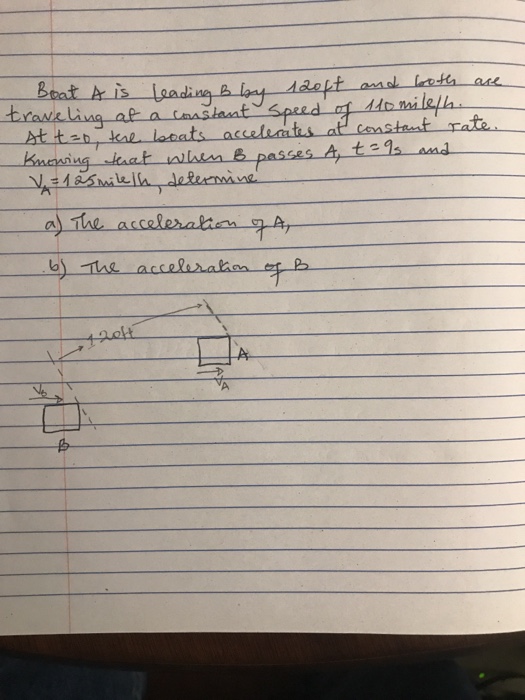 Boat A is leading B by 120ft and both are
traveling at a constant speed of 110 mile/h.
At t=0, the boats accelerates at constant rate.
Knowing that when B passes A, t=9s and
VA=125mile/h, determine
a) The acceleration of A,
b) The acceleration of B
120ft
A
VA
B